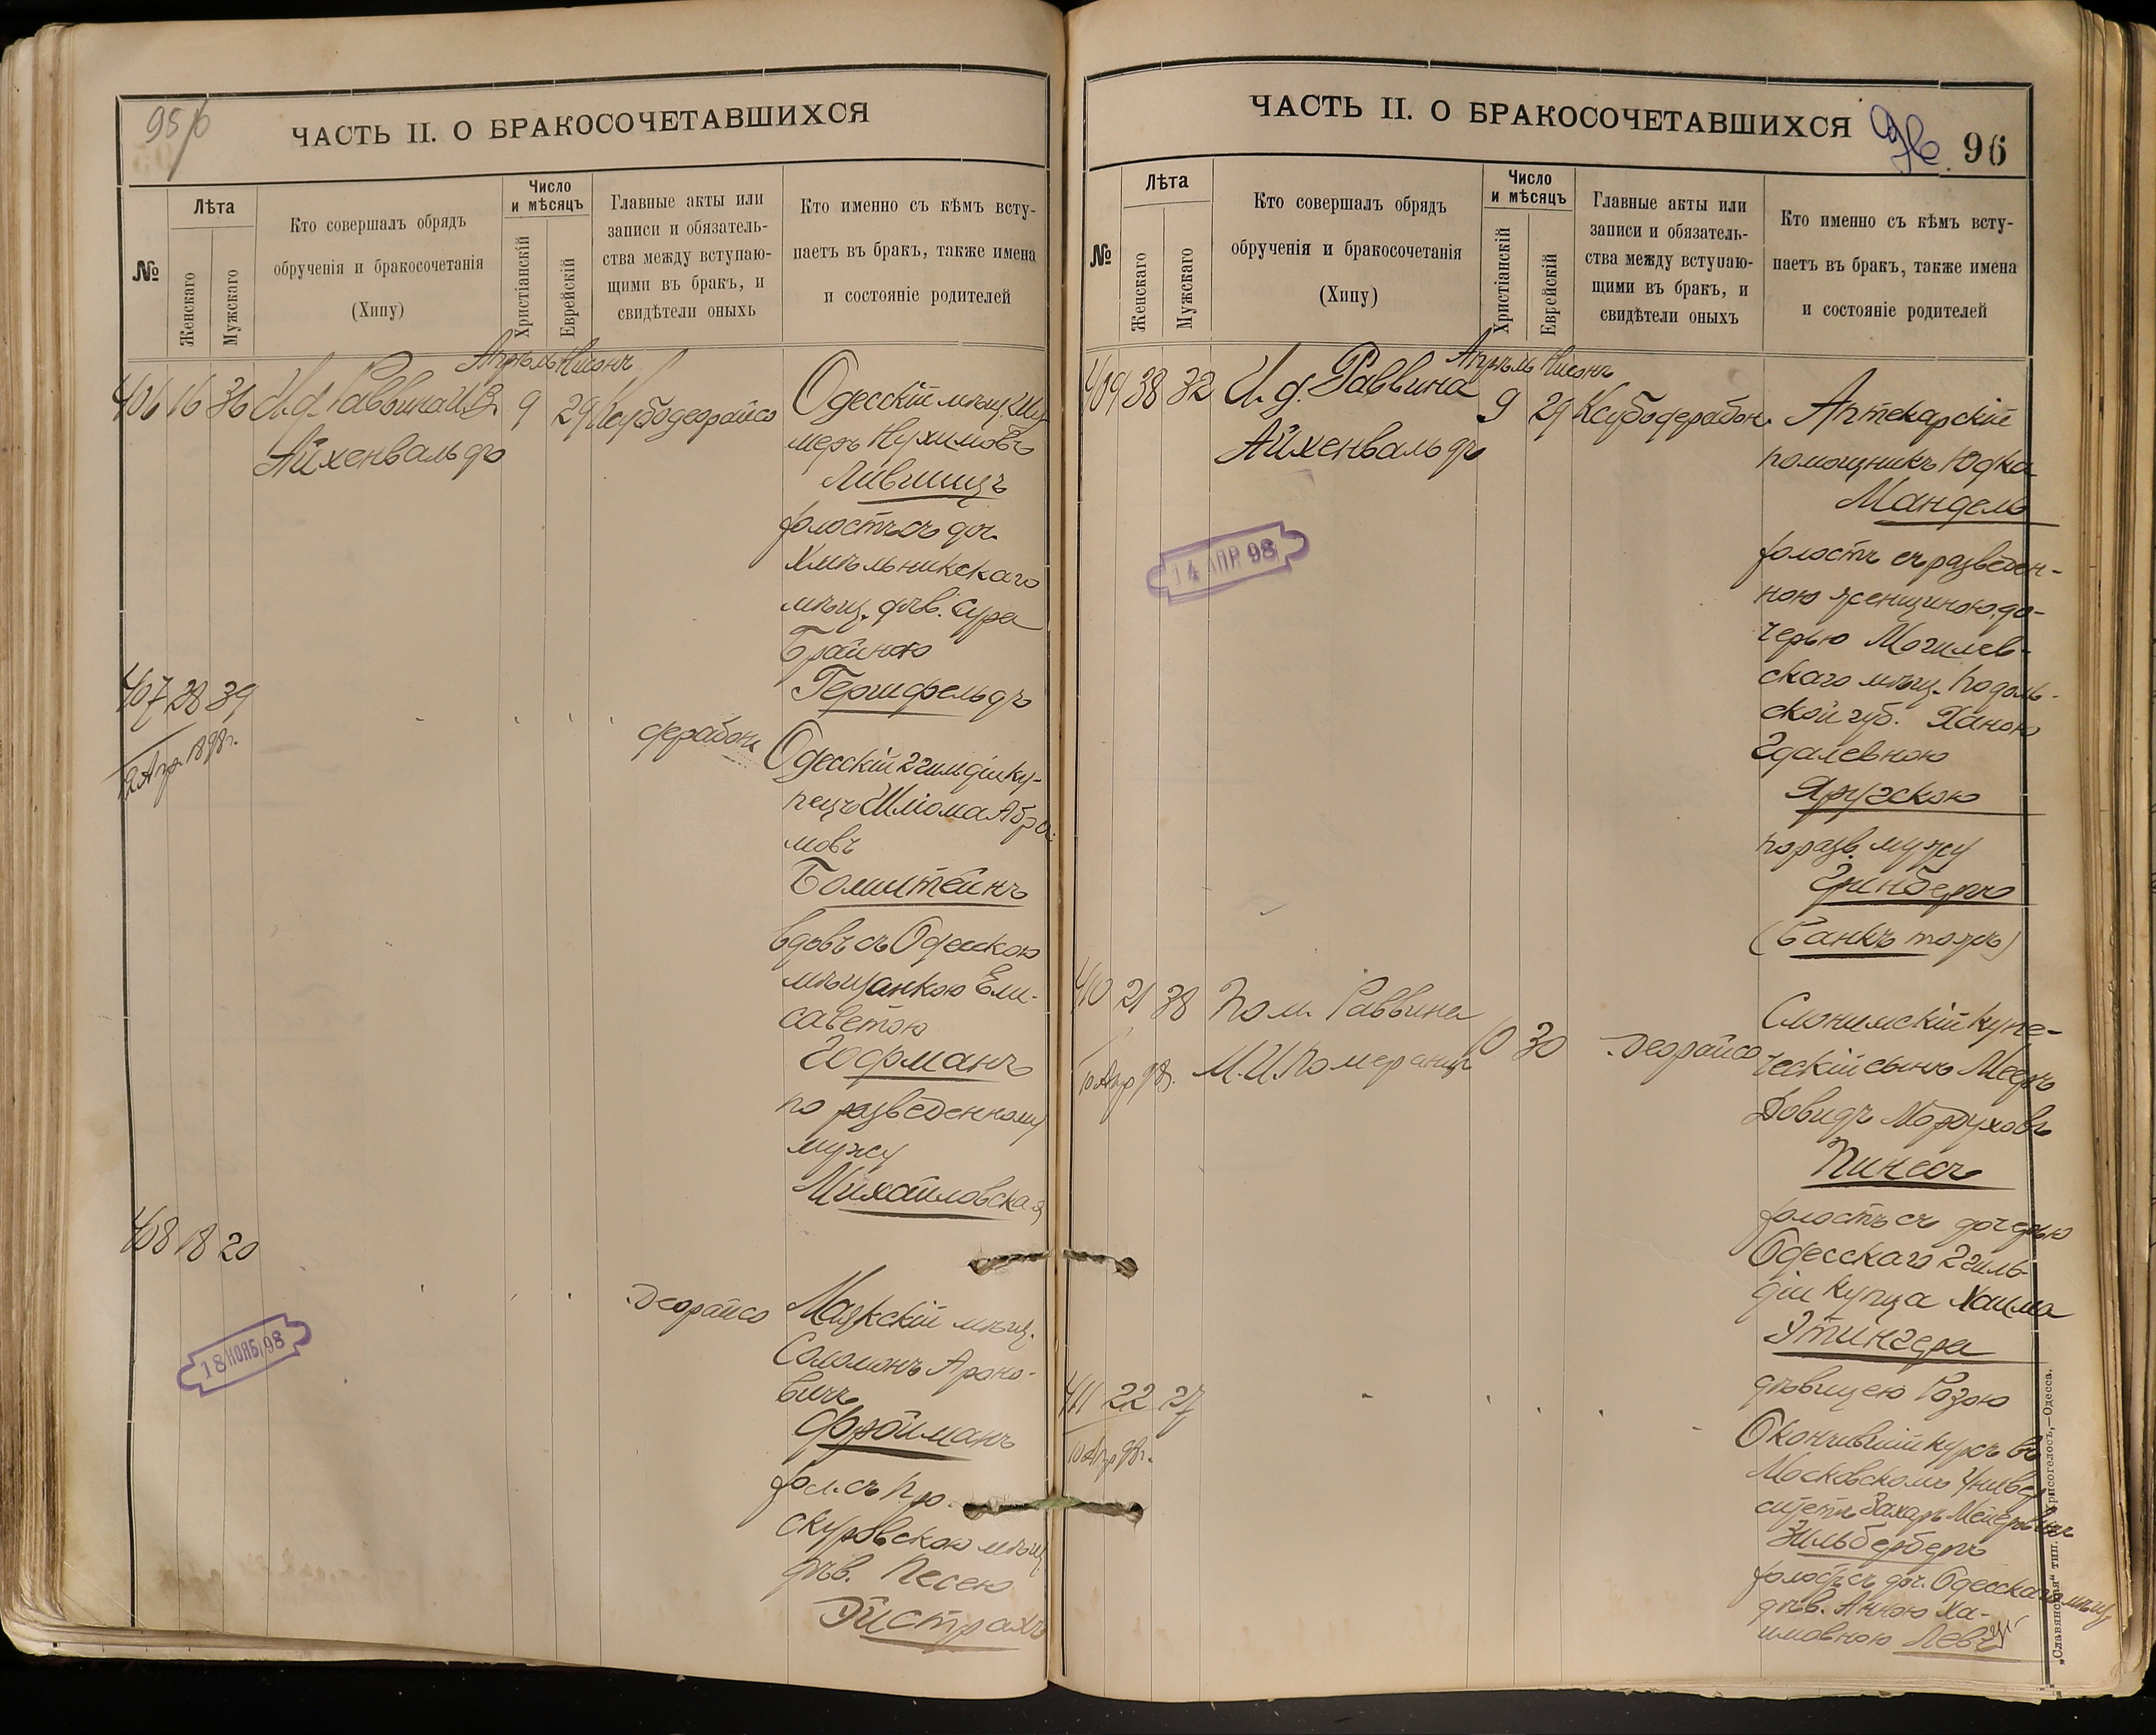 95/б
ЧАСТЬ II. О БРАКОСОЧЕТАВШИХСЯ
№
Лѣта
Женскаго
Мужскаго
Кто совершалъ обрядъ
обрученія и бракосочетанія
(Хипу)
Число
и мѣсяцъ
Христіанскій
Еврейскій
Главные акты или
записи и обязатель-
ства между вступаю-
щими въ бракъ, и
свидѣтели оныхъ
Кто именно съ кѣмъ всту-
паетъ въ бракъ, также имена
и состояніе родителей
Апрѣль Нисонъ
406 16 36 И. д. Раввина
Айхенвальдъ
9 29
Одесскій мѣщ.
меръ Нухимовъ
Лившицъ
холостъ съ доч.
Хмѣльникскаго
мѣщ. дѣв. Сура
Брайною
Гершфельдъ
407 28 39
Апр. 1898 г.
дерабон.
Одесскій 2 гильдіи ку-
пецъ Шліома Абра
мовъ
Бомштейнъ
вдовъ съ Одесскою
мѣщанкою Ели-
саветою
Гофманъ
по разведенному
мужу
Михайловская
408 18 20
18 НОЯБ 98
Деорайсо
Маякскій мѣщ.
Соломонъ Ароно-
вичъ
Фройманъ
хол. съ Про-
скуровскою мѣщ.
дѣв. Песею
Ойстрахъ
ЧАСТЬ II. О БРАКОСОЧЕТАВШИХСЯ
96
96
№
Лѣта
Женскаго
Мужскаго
Кто совершалъ обрядъ
обрученія и бракосочетанія
(Хипу)
Число
и мѣсяцъ
Христіанскій
Еврейскій
Главные акты или
записи и обязатель-
ства между вступаю-
щими въ бракъ, и
свидѣтели оныхъ
Кто именно съ кѣмъ всту-
паетъ въ бракъ, также имена
и состояніе родителей
Апрѣль Нисонъ
409 38 32 И. д. Раввина
Айхенвальдъ
9 29 Ксубодерабон.
14 АПР 98
Аптекарскій
помощникъ Юдка
Мандель
холостъ съ разведен-
ною женщиною, до-
черью Могилев-
скаго мѣщ. Подоль-
ской губ. Ханою
Гдалевною
Яругскою
по разв. мужу
Гринбергъ
(Банкъ тожъ)
410 21 38 Пом. Раввина
М. И. Померанцъ
10 Апр 98.
10 30
Деорайсо
Слонимскій купе-
ческій сынъ Мееръ
Довидъ Мордуховъ
Пинесъ
холостъ съ дочерью
Одесскаго 2 гиль-
діи купца Хаима
Этингера
дѣвицею Розою
411 22 27
10 Апр 98 г.
Окончившій курсъ въ
Московскомъ Универ
ситетѣ Захаръ Мейеровичъ
Зильбербергъ
холостъ съ доч. Одесскаго мѣщ
дѣв. Анною Ха-
имовною
„Славянская“ тип. Хрисогелосъ,—Одесса.